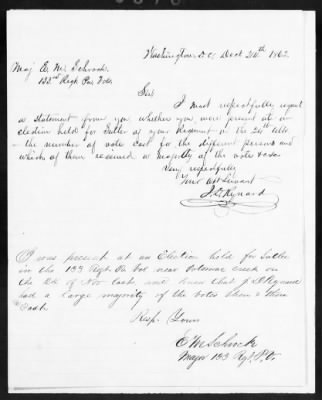 Washington D.C. Dect 24th 1862.
Maj E. M. Schrock.
133rd Regt Pa. Vols.
Sir
I most respectfully request
a statement from you whether you were present at an
election held for Sutler of your Regiment on the 24th ult.
the number of vote cast for the different persons and
which of them received a majority of the vote &c &c.
Very respectfully
Your obt Servant
J. D. Rynard
I was present at an Election held for Sutler
in the 133 Regt Pa Vol near Potomac creek on
the of Nov last and know that J D Rynard
had a large majority of the votes then & there
Cast.
Resp. Yours
E M Schrock
Major 133 Rgt. P.V.